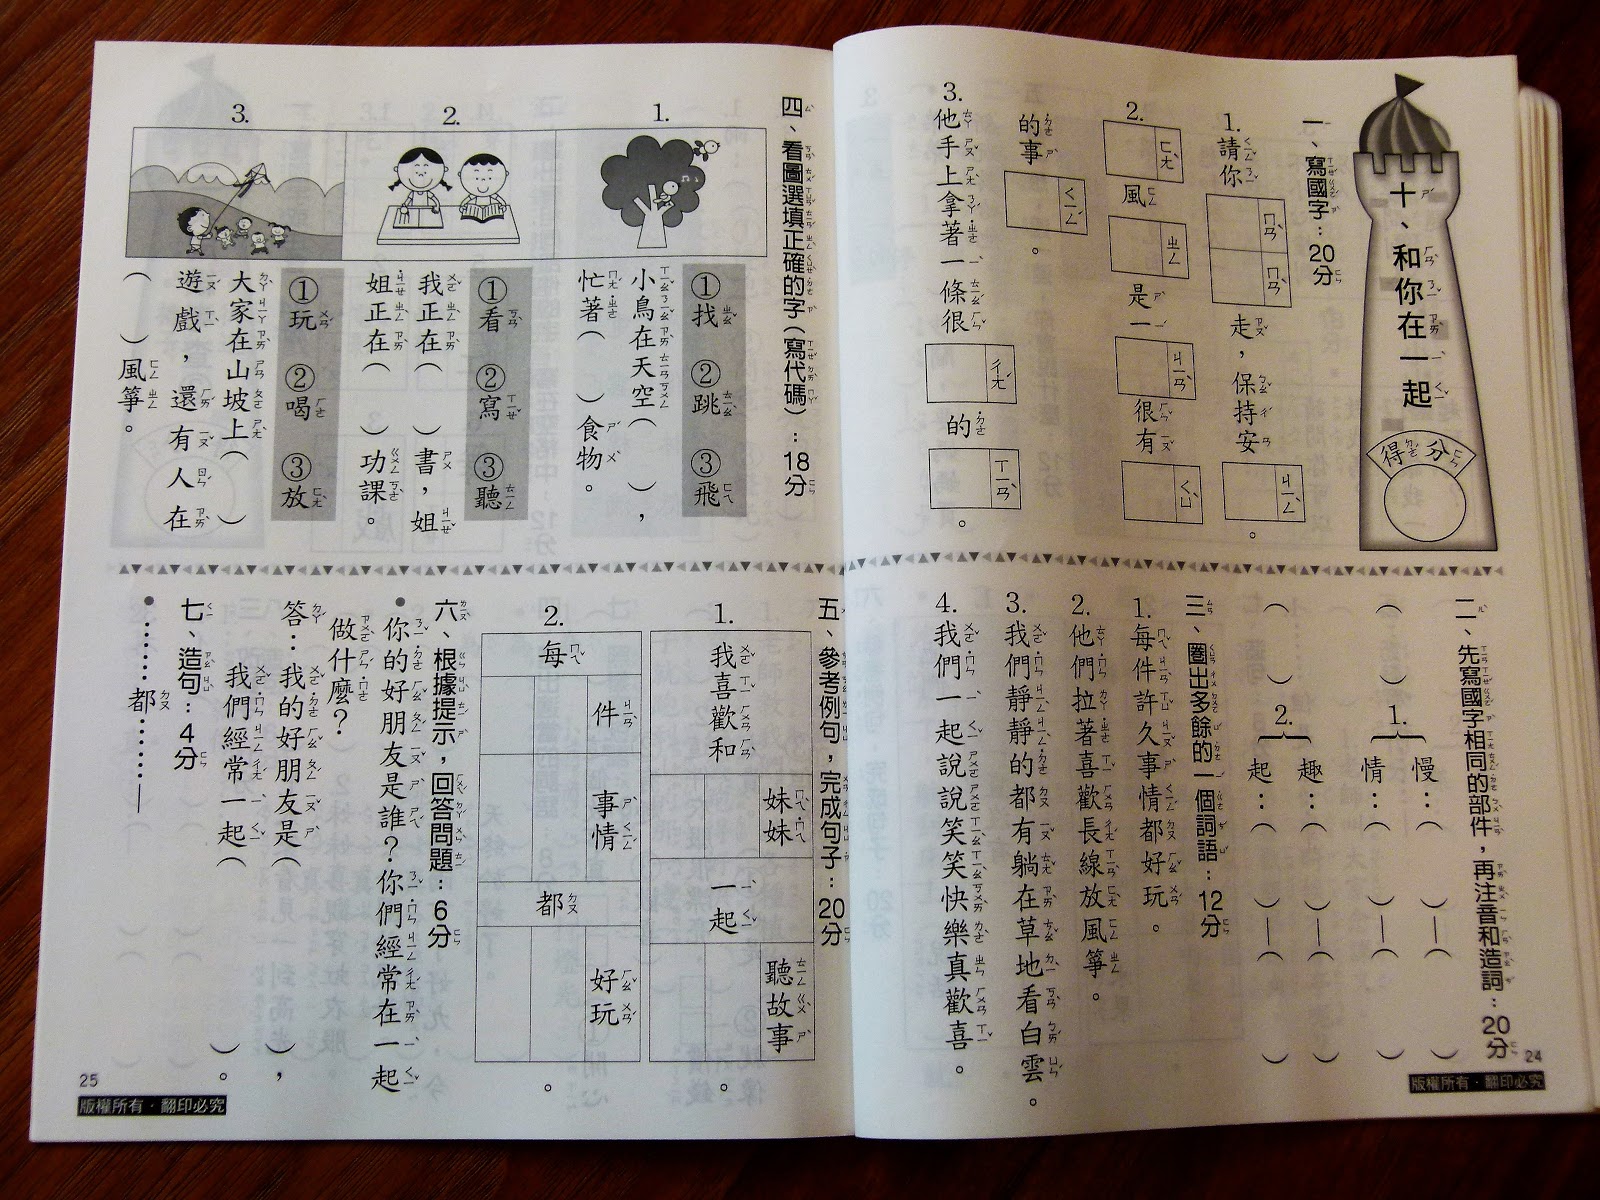 十、和你在一起
得分
一、寫國字：20分
1. 請你 ㄇㄢˋ ㄇㄢˋ 走，保持安 ㄐㄧㄥˋ 。
2. ㄈㄤˋ 風 ㄓㄥ 是一 ㄐㄧㄢˋ 很有 ㄑㄩˋ
的事 ㄑㄧㄥˊ 。
3. 他手上拿著一條很 ㄔㄤˊ 的 ㄒㄧㄢˋ 。
二、先寫國字相同的部件，再注音和造詞：20分
1. ( ) 慢：( )—( )
情：( )—( )
2. ( ) 趣：( )—( )
起：( )—( )
三、圈出多餘的一個詞語：12分
1. 每件許久事情都好玩。
2. 他們拉著喜歡長線放風箏。
3. 我們靜靜的都有躺在草地看白雲。
4. 我們一起說說笑笑快樂真歡喜。
24
版權所有・翻印必究
四、看圖選填正確的字(寫代碼)：18分
1.
①找 ②跳 ③飛
小鳥在天空( )，
忙著( )食物。
2.
①看 ②寫 ③聽
我正在( )書，姐
姐正在( )功課。
3.
①玩 ②喝 ③放
大家在山坡上( )
遊戲，還有人在
( )風箏。
五、參考例句，完成句子：20分
1. 我喜歡和 妹妹 一起 聽故事 。
2. 每 件 事情 都 好玩 。
六、根據提示，回答問題：6分
•你的好朋友是誰？你們經常在一起
做什麼？
答：我的好朋友是( )，
我們經常一起( )。
七、造句：4分
•……都……—
25
版權所有・翻印必究